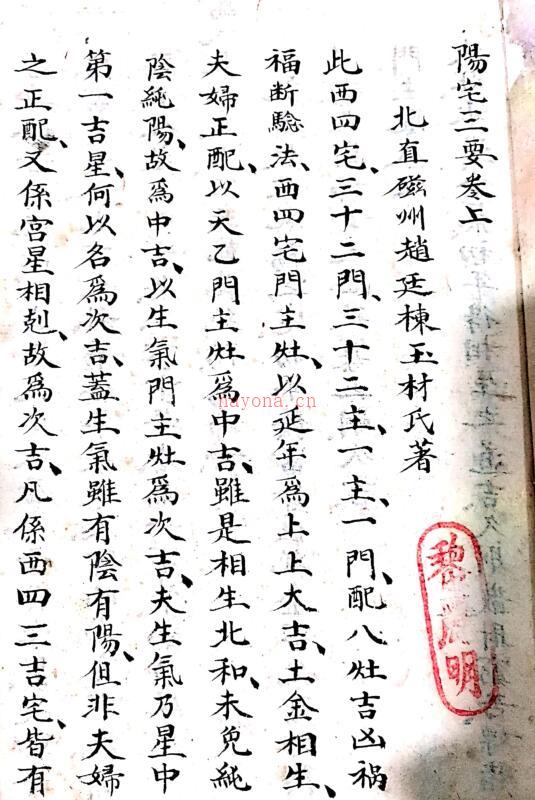 陽宅三要卷上
北直磁州趙廷棟玉材氏著
此西四宅、三十二門、三十二主、一主、一門、配八灶吉凶禍
福断驗法、西四宅門主灶、以延年爲上上大吉、土金相生、
夫婦正配、以天乙門主灶爲中吉、雖是相生北和、未免純
陰純陽、故爲中吉、以生氣門主灶爲次吉、夫生氣乃星中
第一吉星、何以名爲次吉、蓋生氣雖有陰有陽、但非夫婦
之正配、又係宮星相剋、故爲次吉、凡係西四三吉宅、皆有
明
nayona.cn